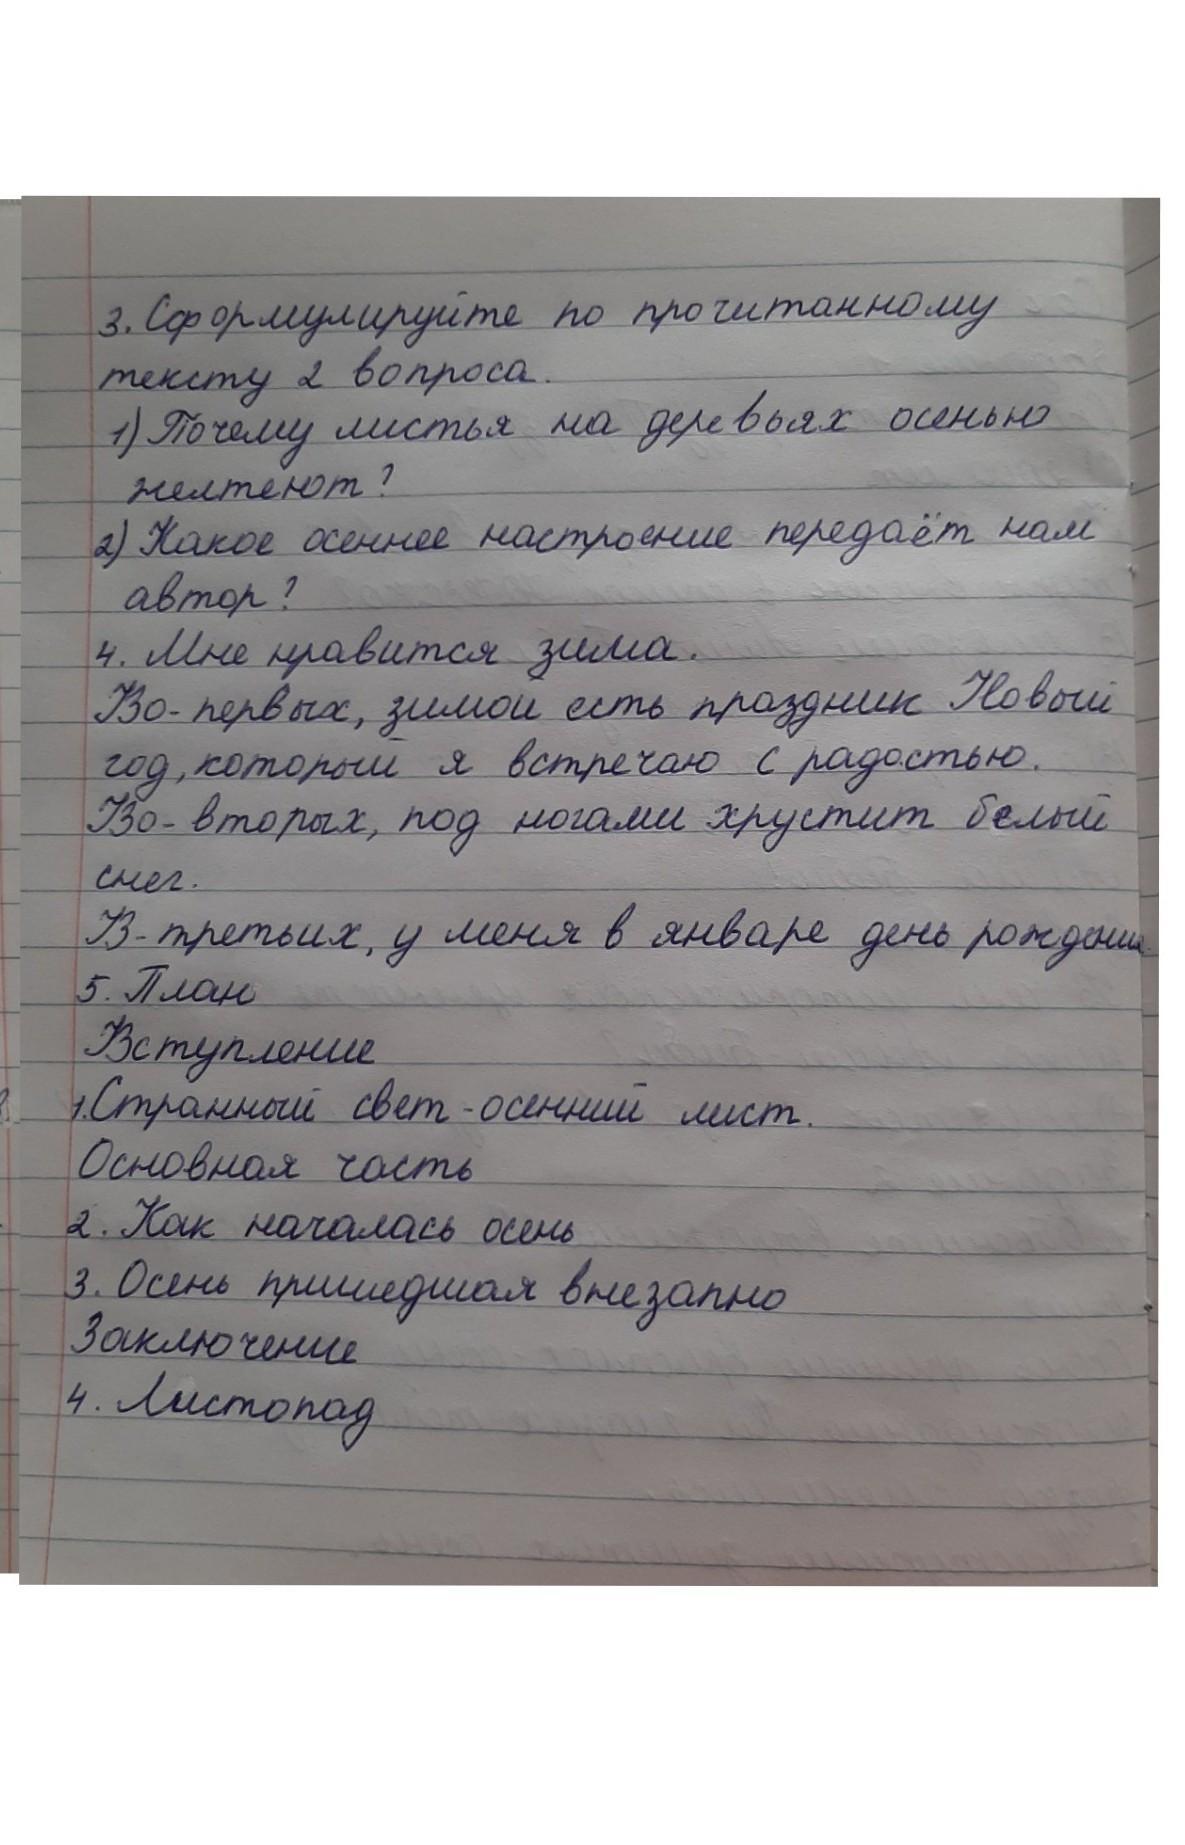 3. Сформулируйте по прочитанному
тексту 2 вопроса.
1) Почему листья на деревьях осенью
желтеют?
2) Какое осеннее настроение передаёт нам
автор?
4. Мне нравится зима.
Во-первых, зимой есть праздник Новый
год, который я встречаю с радостью.
Во-вторых, под ногами хрустит белый
снег.
В-третьих, у меня в январе день рождения.
5. План
Вступление
1. Странный свет - осенний лист.
Основная часть
2. Как началась осень
3. Осень пришедшая внезапно
Заключение
4. Листопад